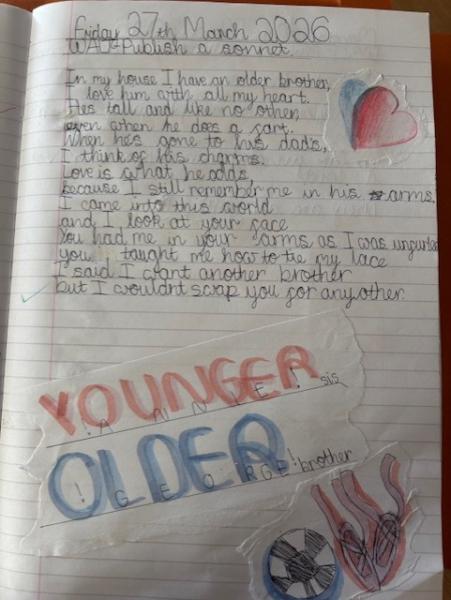 Friday 27th March 2026
WAL: Publish a sonnet
In my house I have an older brother,
I love him with all my heart.
Hes tall and like no other,
even when he does a fart.
When he's gone to his dad's,
I think of his charms.
Love is what he adds,
because I still remember me in his arms.
I came into this world
and I look at your face
You had me in your arms as I was unfurled
you taught me how to tie my lace
I said I want another brother
but I wouldnt swap you for any other.
YOUNGER sis
OLDER brother
! GEORGE !